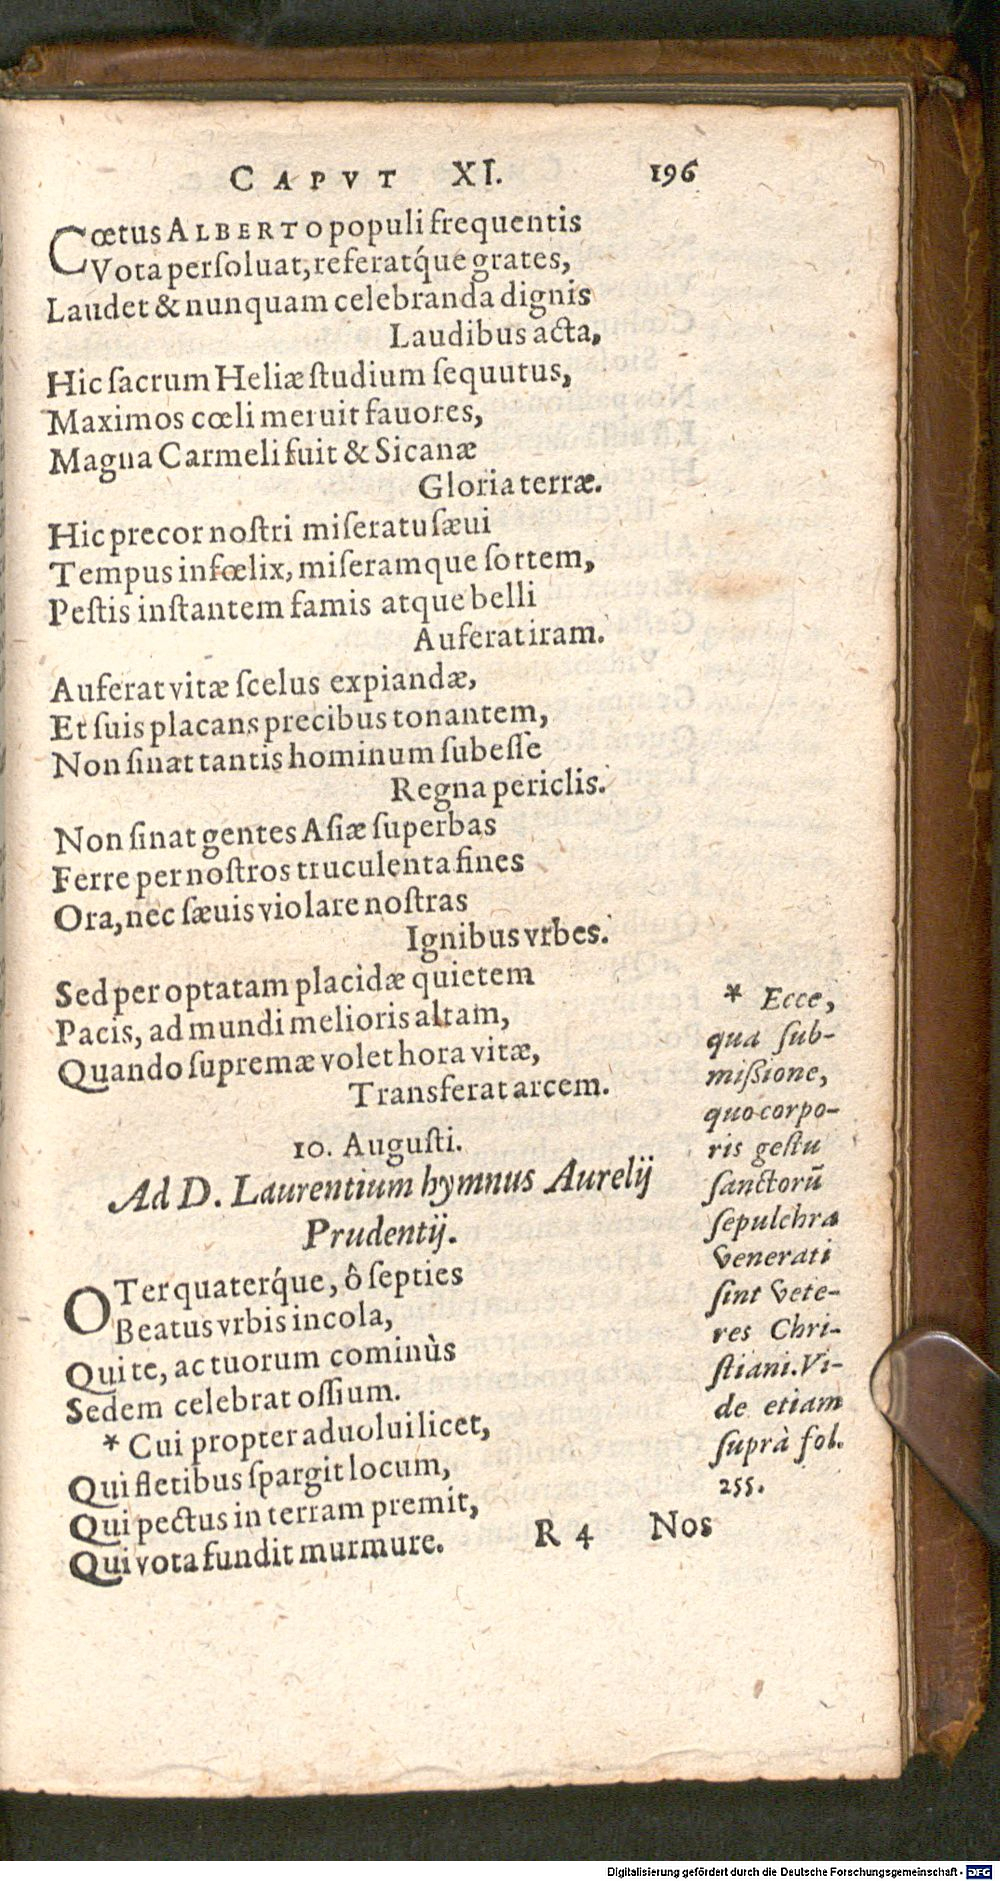 CAPVT XI. 196
Cœtus ALBERTO populi frequentis
Vota persoluat, referatq́ue grates,
Laudet & nunquam celebranda dignis
Laudibus acta,
Hic sacrum Heliæ studium sequutus,
Maximos cœli meruit fauores,
Magna Carmeli fuit & Sicanæ
Gloria terræ.
Hic precor nostri miseratu sæui
Tempus infœlix, miseramque sortem,
Pestis instantem famis atque belli
Auferat iram.
Auferat vitæ scelus expiandæ,
Et suis placans precibus tonantem,
Non sinat tantis hominum subesse
Regna periclis.
Non sinat gentes Asiæ superbas
Ferre per nostros truculenta fines
Ora, nec sæuis violare nostras
Ignibus vrbes.
Sed per optatam placidæ quietem
Pacis, ad mundi melioris altam,
Quando supremæ volet hora vitæ,
Transferat arcem.
10. Augusti.
Ad D. Laurentium hymnus Aurelij
Prudentij.
O Ter quaterq́ue, ô septies
Beatus vrbis incola,
Qui te, ac tuorum cominùs
Sedem celebrat ossium.
* Cui propter aduolui licet,
Qui fletibus spargit locum,
Qui pectus in terram premit,
Qui vota fundit murmure.
* Ecce,
qua sub-
missione,
quo corpo-
ris gestu
sanctorū
sepulchra
venerati
sint vete-
res Chri-
stiani. Vi-
de etiam
suprà fol.
255.
R 4 Nos
Digitalisierung gefördert durch die Deutsche Forschungsgemeinschaft - DFG